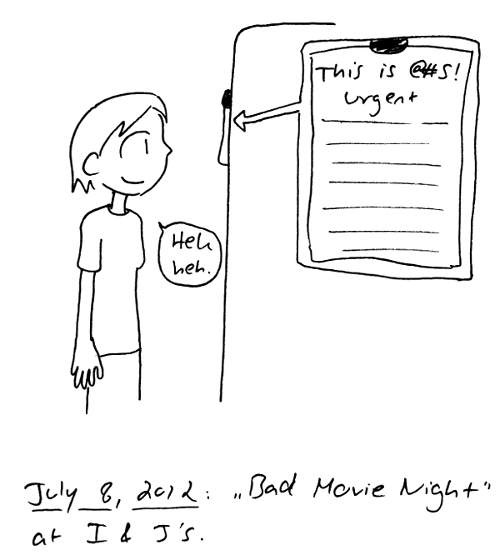 This is @#$!
urgent
Heh
heh.
July 8, 2012: „Bad Movie Night"
at I & J's.